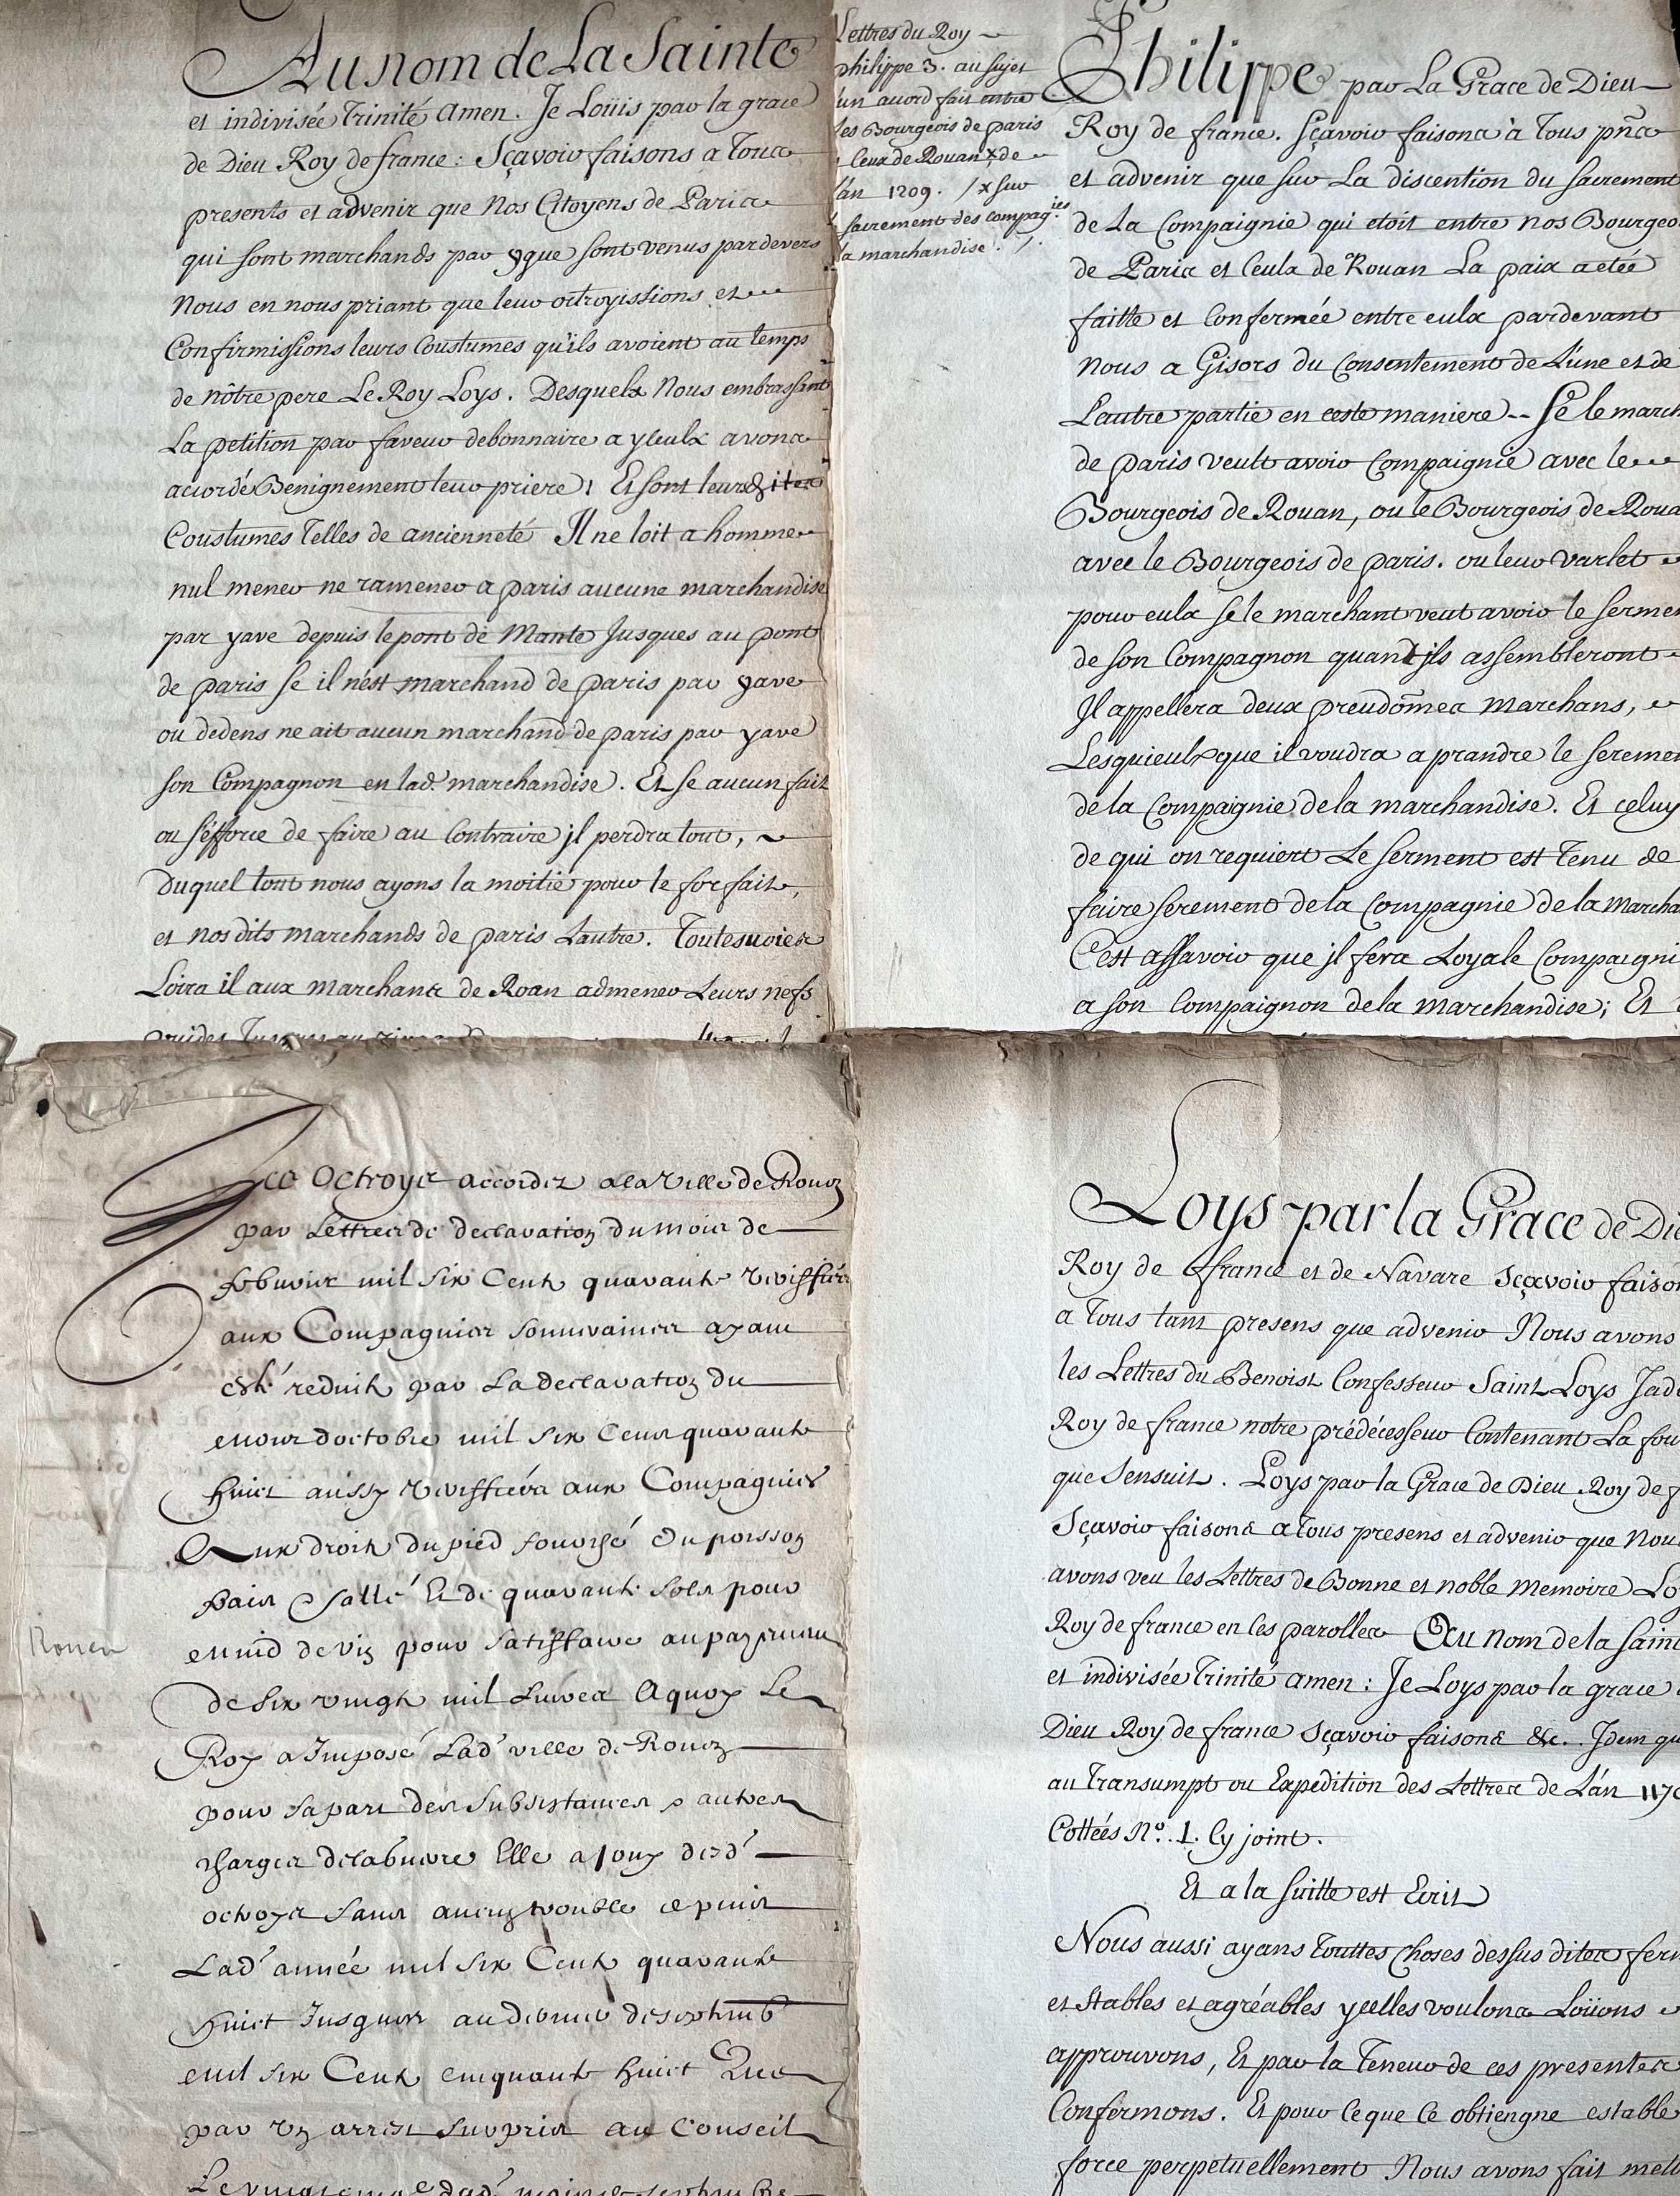 Au nom de La Sainte
et indivisée Trinité Amen. Je Loüis par la grace
de Dieu Roy de france: Sçavoir faisons a Tous
presents et advenir que Nos Citoyens de Paris
qui sont marchands par yque sont venus pardevers
Nous en nous priant que leur octroyissions et
Confirmissions leurs Coustumes qu'ils avoient au temps
de nôtre pere Le Roy Loys. Desquels Nous embrassant
La petition par faveur debonnaire a yceulx avons
acordé Benignement leur priere; Et sont leursdites
Coustumes Telles de ancienneté Il ne loit a homme
nul mener ne ramener a paris aucune marchandise
par yave depuis le pont de Mante Jusques au pont
de paris se il n'est marchand de paris par yave
ou dedens ne ait aucun marchand de paris par yave
son Compagnon en lad. marchandise. Et se aucun fait
ou s'éfforce de faire au Contraire jl perdra tout,
Duquel tout nous ayons la moitié pour le forfait,
et nosdits marchands de paris Lautre. Toutesvoies
Loira il aux marchants de Roan admener Leurs nefs
vuides
Lettres du Roy
philippe 3. au sujet
un acord fait entre
les Bourgeois de paris
Ceux de Rouan x de
l'an 1209. / x sur
sacrement des compag.ies
la marchandise. /.
Philippe par La Grace de Dieu
Roy de france. Sçavoir faisons à Tous pñs
et advenir que sur La discention du sacrement
de La Compaignie qui etoit entre nos Bourgeo
de Paris et Ceulx de Rouan La paix a etée
faitte et Confermée entre eulx pardevant
nous a Gisors du Consentement de L'une et de
L'autre partie en ceste maniere -- Se le march
de paris veult avoir Compaignie avec le
Bourgeois de Rouan, ou le Bourgeois de Roua
avec le Bourgeois de paris. ou leur varlet
pour eulx se le marchant veut avoir le serme
de son Compagnon quant jls assembleront
Il appellera deux preudõmes Marchans,
Lesquieulx que il voudra a prandre le sereme
de la Compaignie de la marchandise. Et celuy
de qui on requiert Le Serment est Tenu de
faire serement de la Compaignie de la Marcha
C'est assavoir que jl fera Loyale Compaigni
a son Compaignon de la Marchandise; Et
Les Octroys accordez a la Ville de Rouen
par Lettres de declaration du mois de
febvrier mil six Cent quarante
aux Compagnies souveraines ayant
esté reduits par La declaration du
mois d'octobre mil six Cens quarante
huict aussy aux Compagnies
Aux droits du pied fourché du poisson
Salté Et de quarante Sols pour
muid de vin pour Satisffaire au payement
de Six vingts mil Livres A quoy Le
Roy a Imposé Lad' ville de Rouen
pour sa part des Subsistances & autres
Charges Elle a jouy desd'
octroys sans aucun trouble depuis
Lad' année mil six Cents quarante
huict Jusques au dernier de septemb
mil six Cents cinquante huict Que
par un arrest surpris au Conseil
Rouen
Loys par la Grace de Die
Roy de ffrance et de Navare Sçavoir faison
a Tous tant presens que advenir Nous avons
les Lettres du Benoist Confesseur Saint Loys Jad
Roy de france notre prédécesseur Contenant La fou
que sensuit. Loys par la Grace de Dieu Roy de f
Sçavoir faisons a Tous presens et advenir que Nou
avons veu les Lettres de Bonne et noble Memoire Lo
Roy de france en ces parolles Au nom de la Saint
et indivisée Trinité Amen: Je Loys par la grace
Dieu Roy de france Sçavoir faisons &c. Idem qu
au Transumpt ou Expedition des Lettres de L'an 117
Cottées N.º 1. Cy joint.
Et a la Suitte est Ecrit
Nous aussi ayans Touttes Choses dessus dites ferm
et stables et agréables ycelles voulons Loüons
approuvons, Et par la Teneur de ces presentes
Confirmons. Et pour Ceque Ce obtiengne estable
force perpetuellement Nous avons fait mett